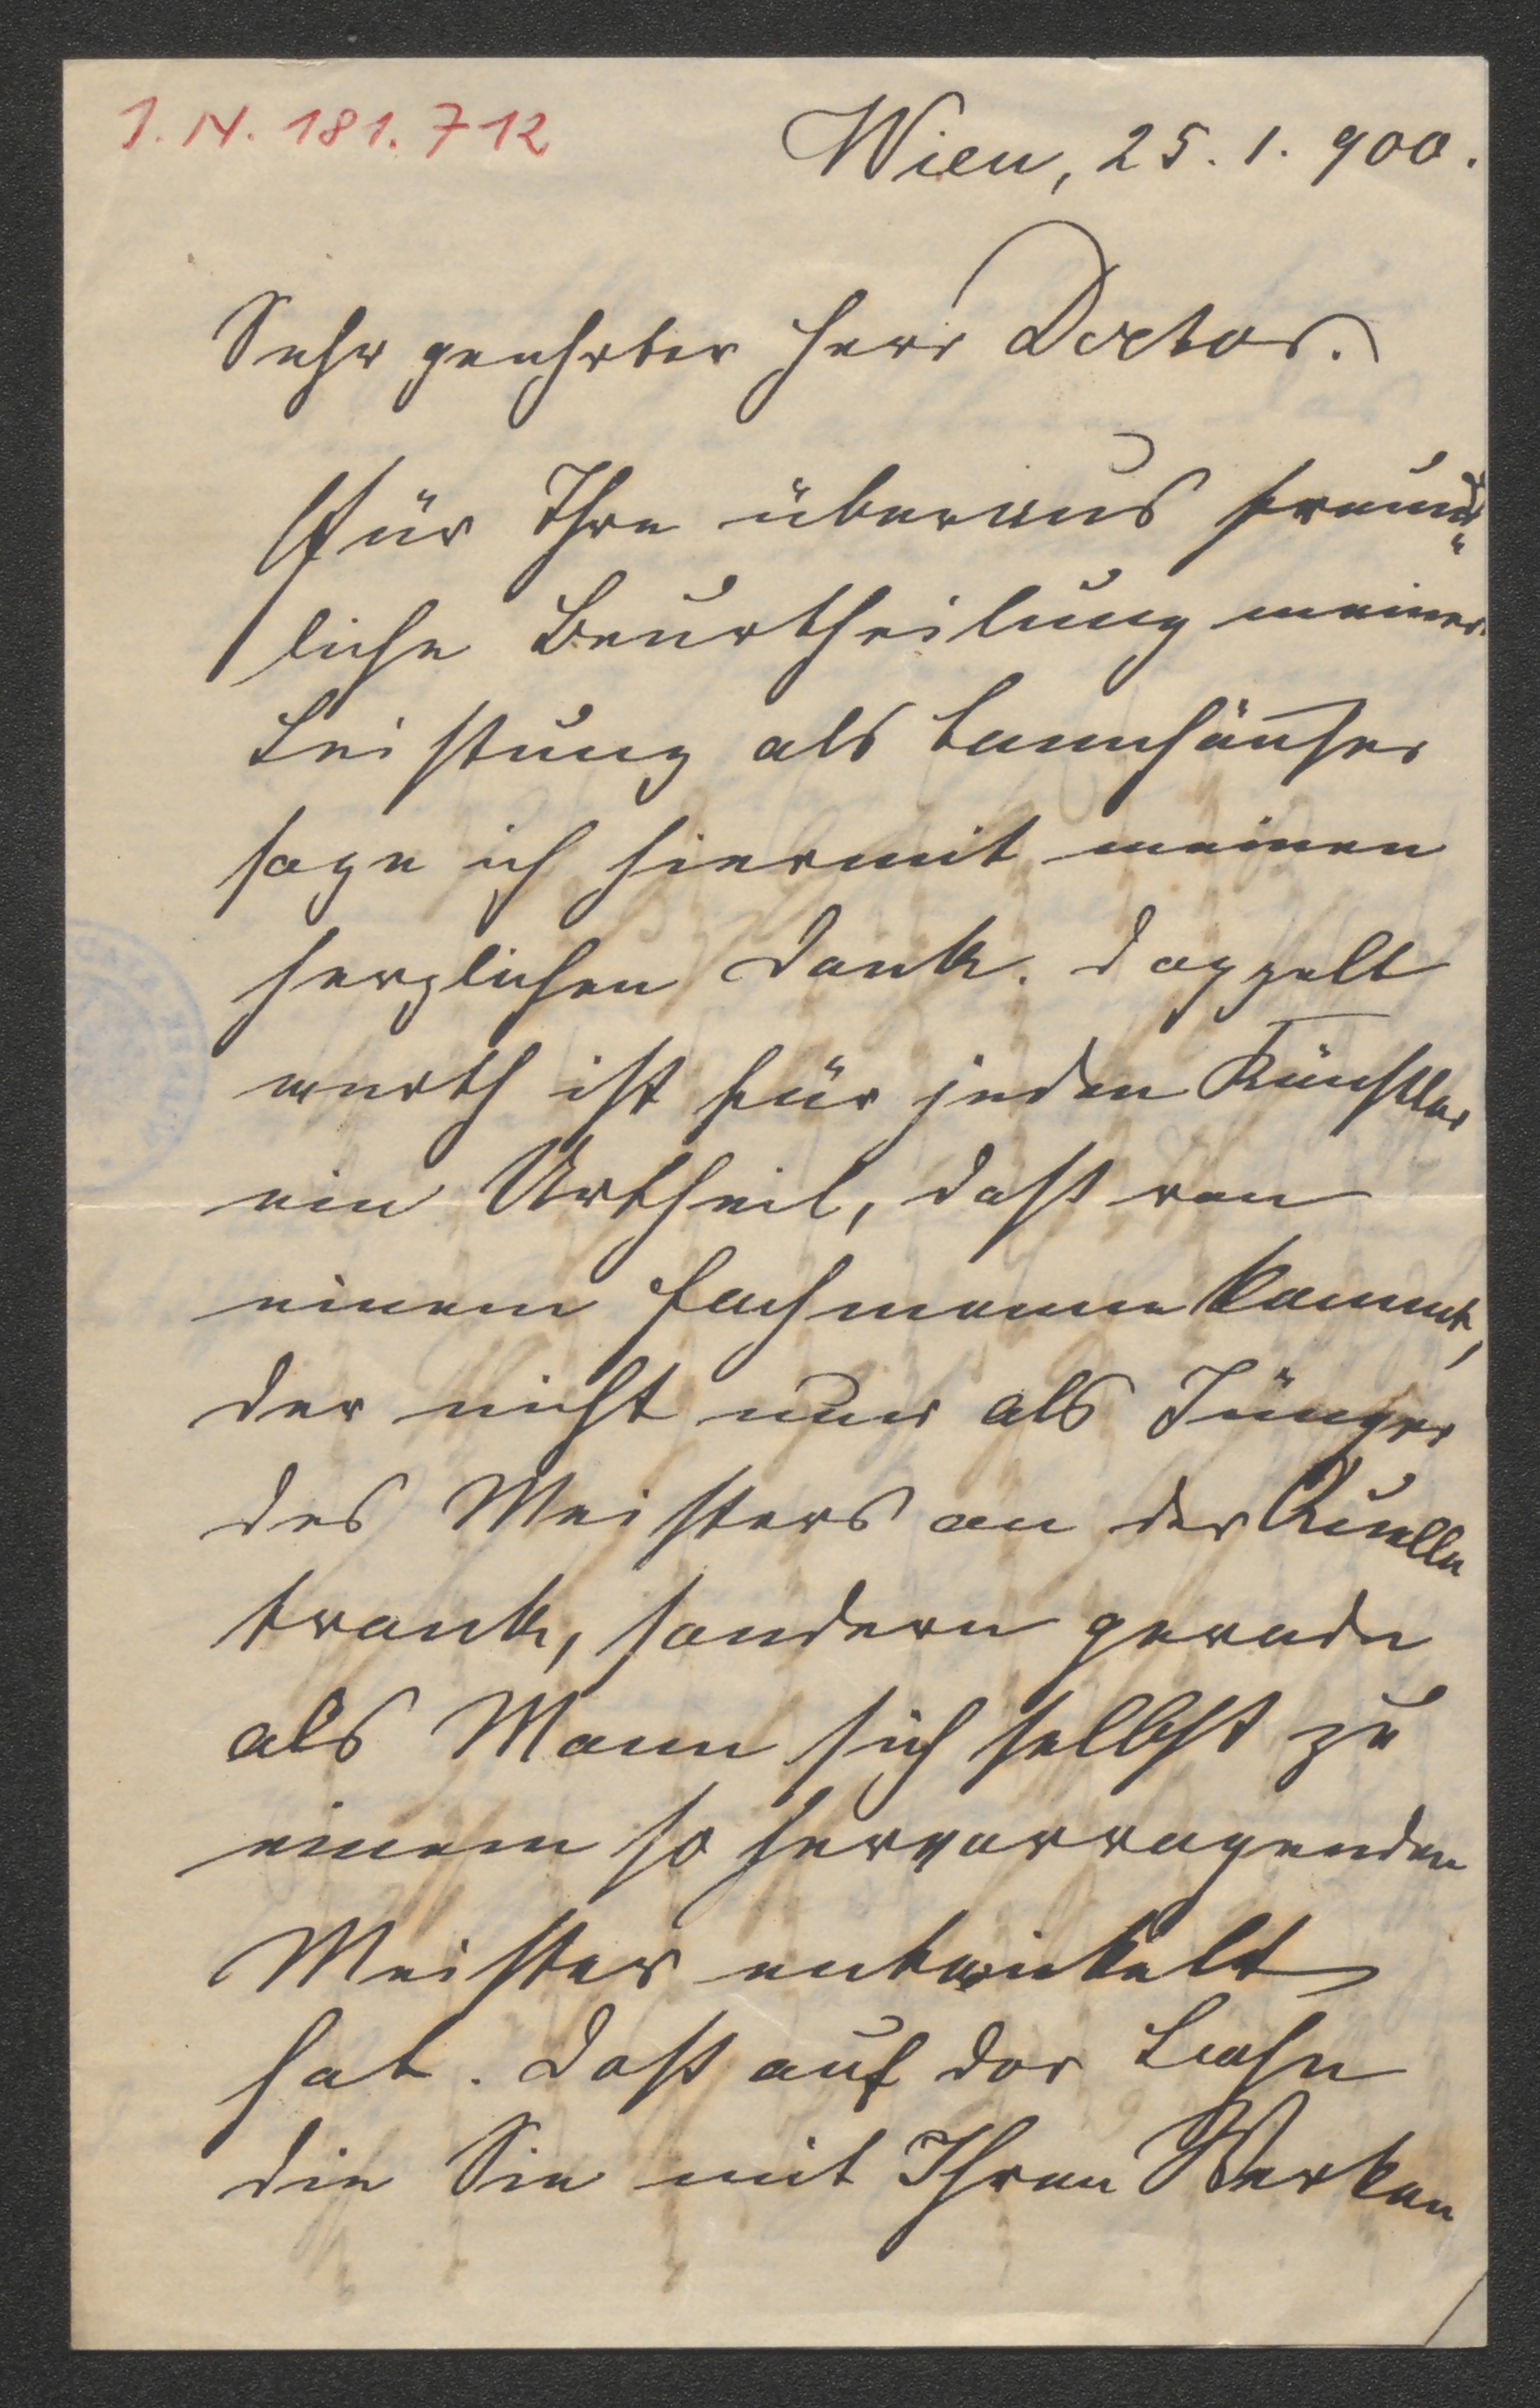 I. N. 181.712
Wien, 25. 1. 900.
Sehr geehrter Herr Doctor.
Für Ihre überaus freund-
liche Beurtheilung meiner
Leistung als Tannhäuser
sage ich hiermit meinen
herzlichen Dank. Doppelt
werth ist für jeden Künstler
ein Urtheil, daß von
einem Fachmanne kommt,
der nicht nur als Jünger
des Meisters an der Quelle
trank, sondern gerade
als Mann sich selbst zu
einem so hervorragenden
Meister entwickelt
hat. Daß auf der Bahn
die Sie mit Ihren Werken